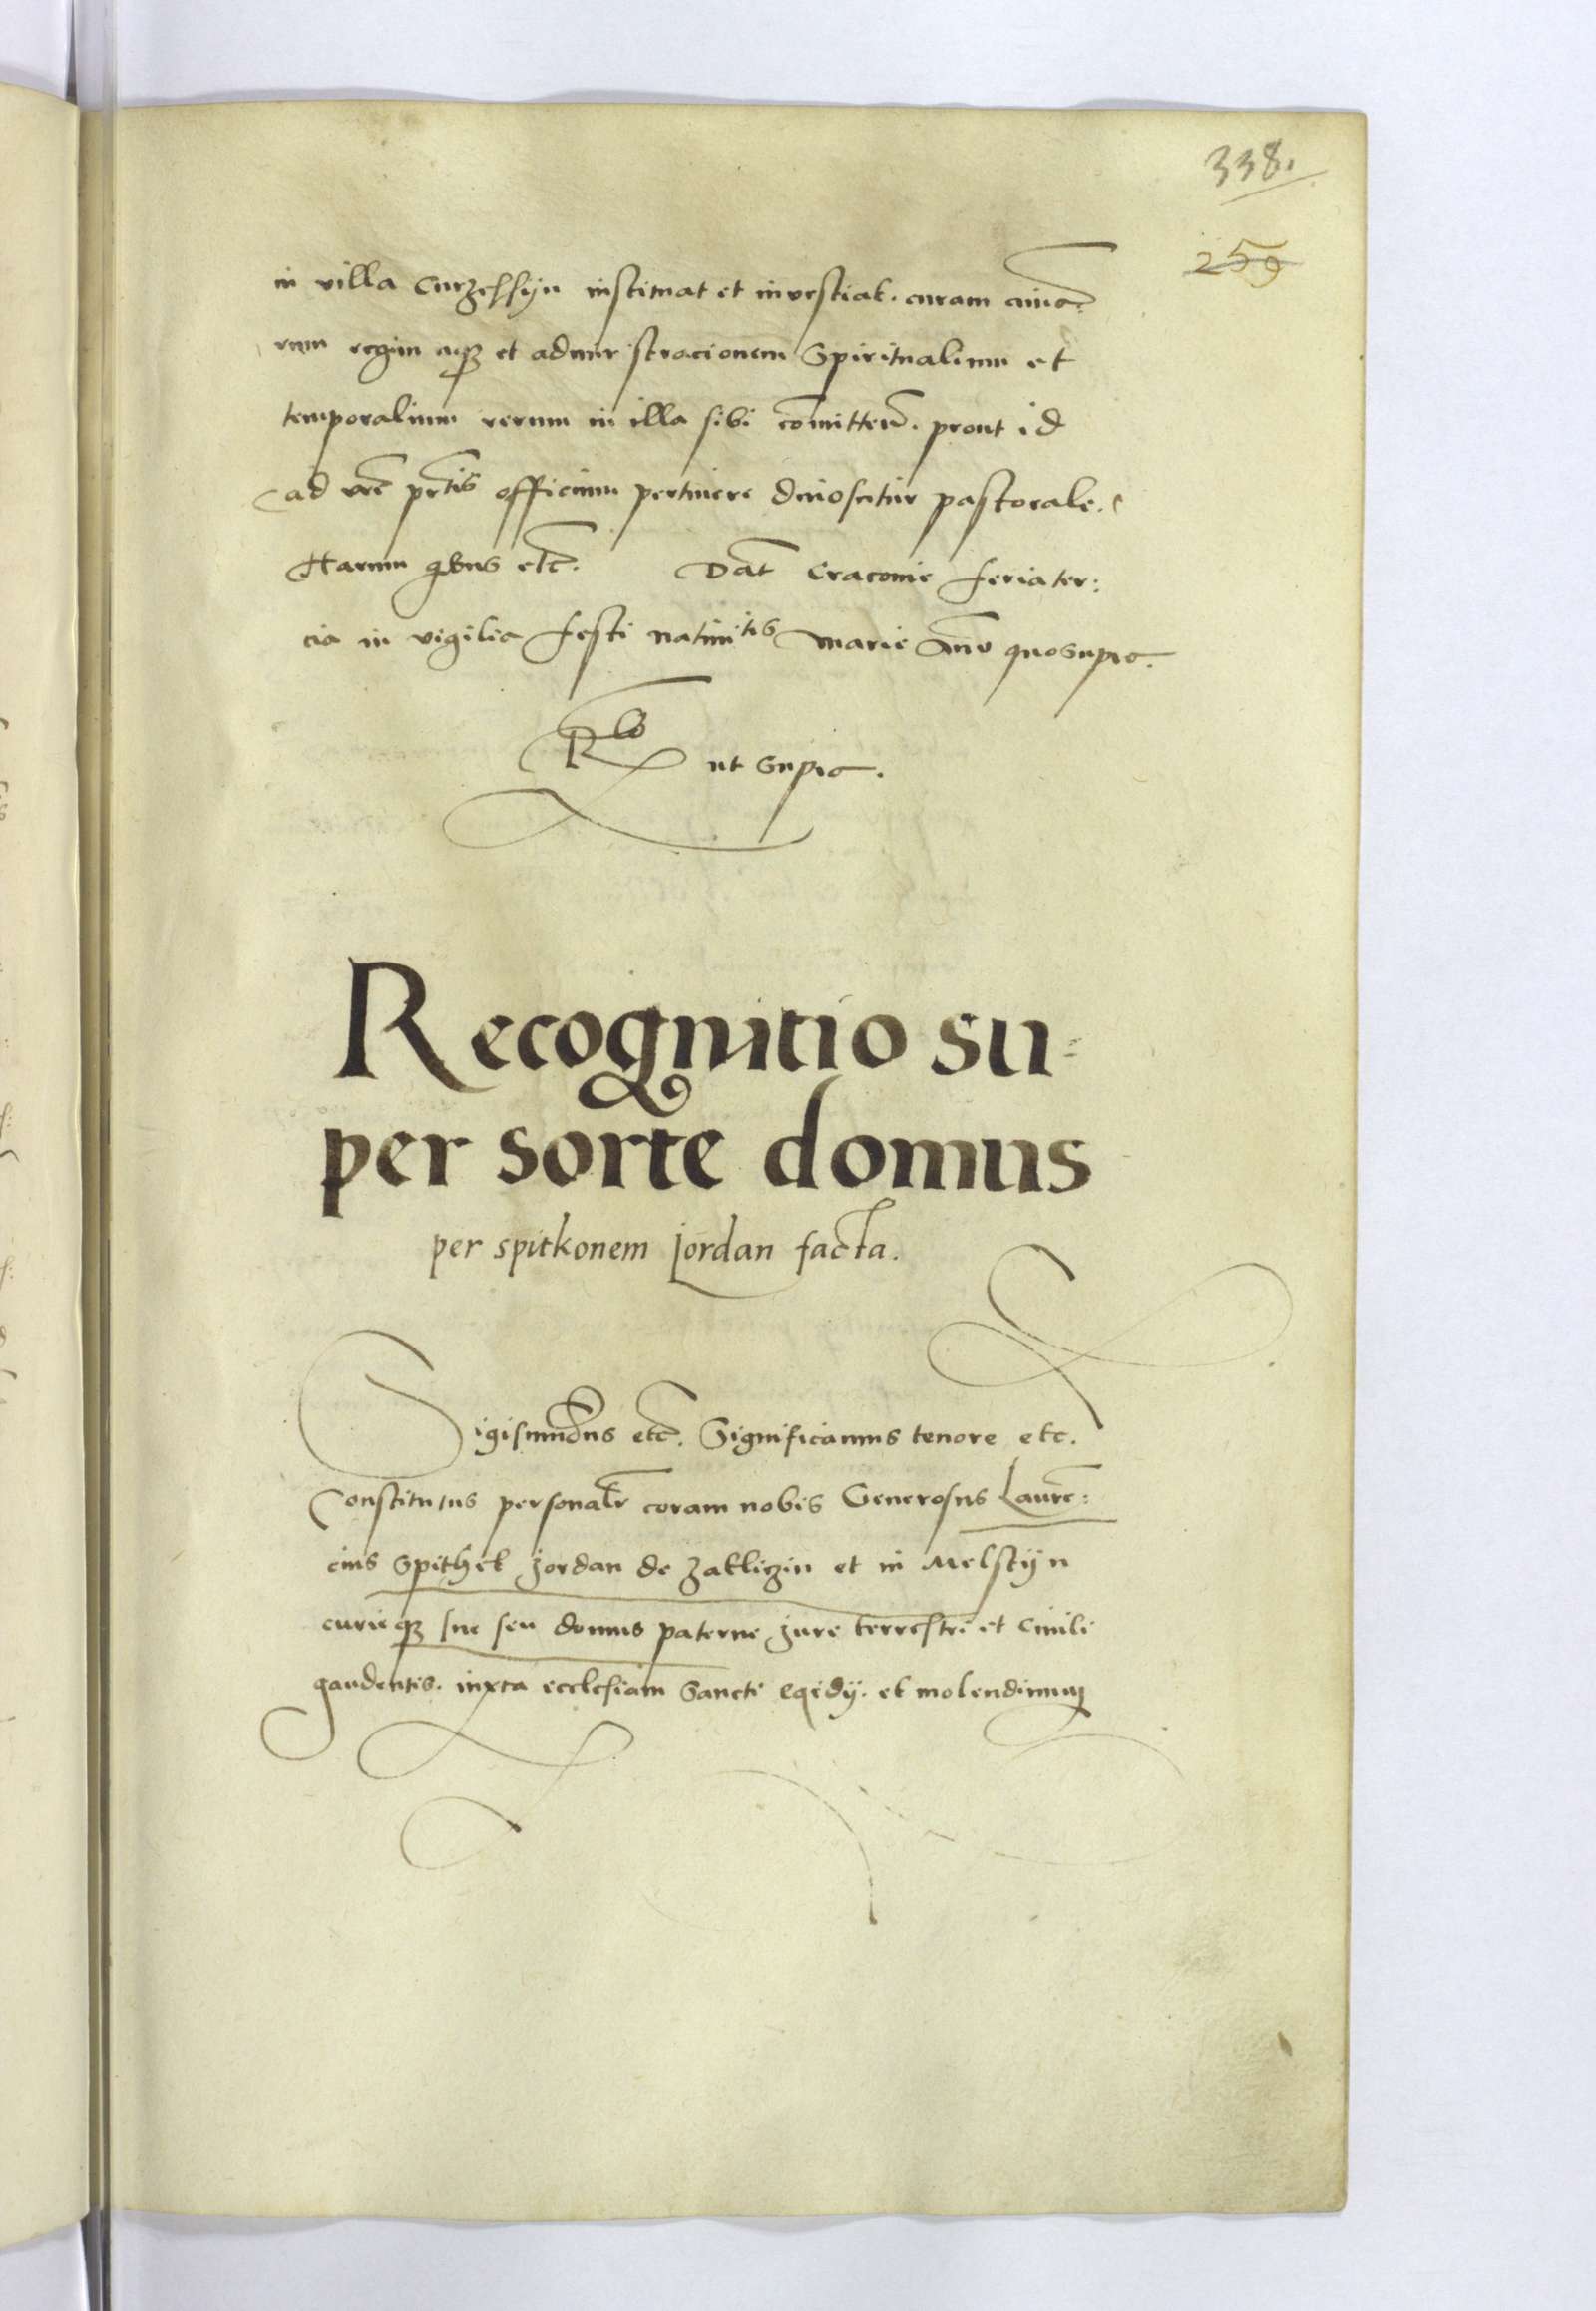 338.
259
in villa Curzessyn instituat et investiat. curam aīa:
rum regim aqꝫ et administracionem Spiritualium et
temporalium rerum in illa sibi cōmitten̄. prout id
ad vr̄e p̄rtis officium pertinere dinoscitur pastorale.
Harum qbus etc̄. Dat̄ Cracovie feria ter:
cia in vigilia festi nativitis Marie Año quo supra.
Rlō ut supra.
Recognitio su:
per sorte domus
per spitkonem Jordan facta.
Sigismundus etc̄. Significamus tenore etc.
Constitutus personalr̄ coram nobis Generosus Laurē:
cius Spithek Jordan de Zakliczin et in Melstijn
curieqꝫ sue seu domus paterne jure terrestri et civili
gaudentis. iuxta ecclesiam Sancti Egidij. et molendinum